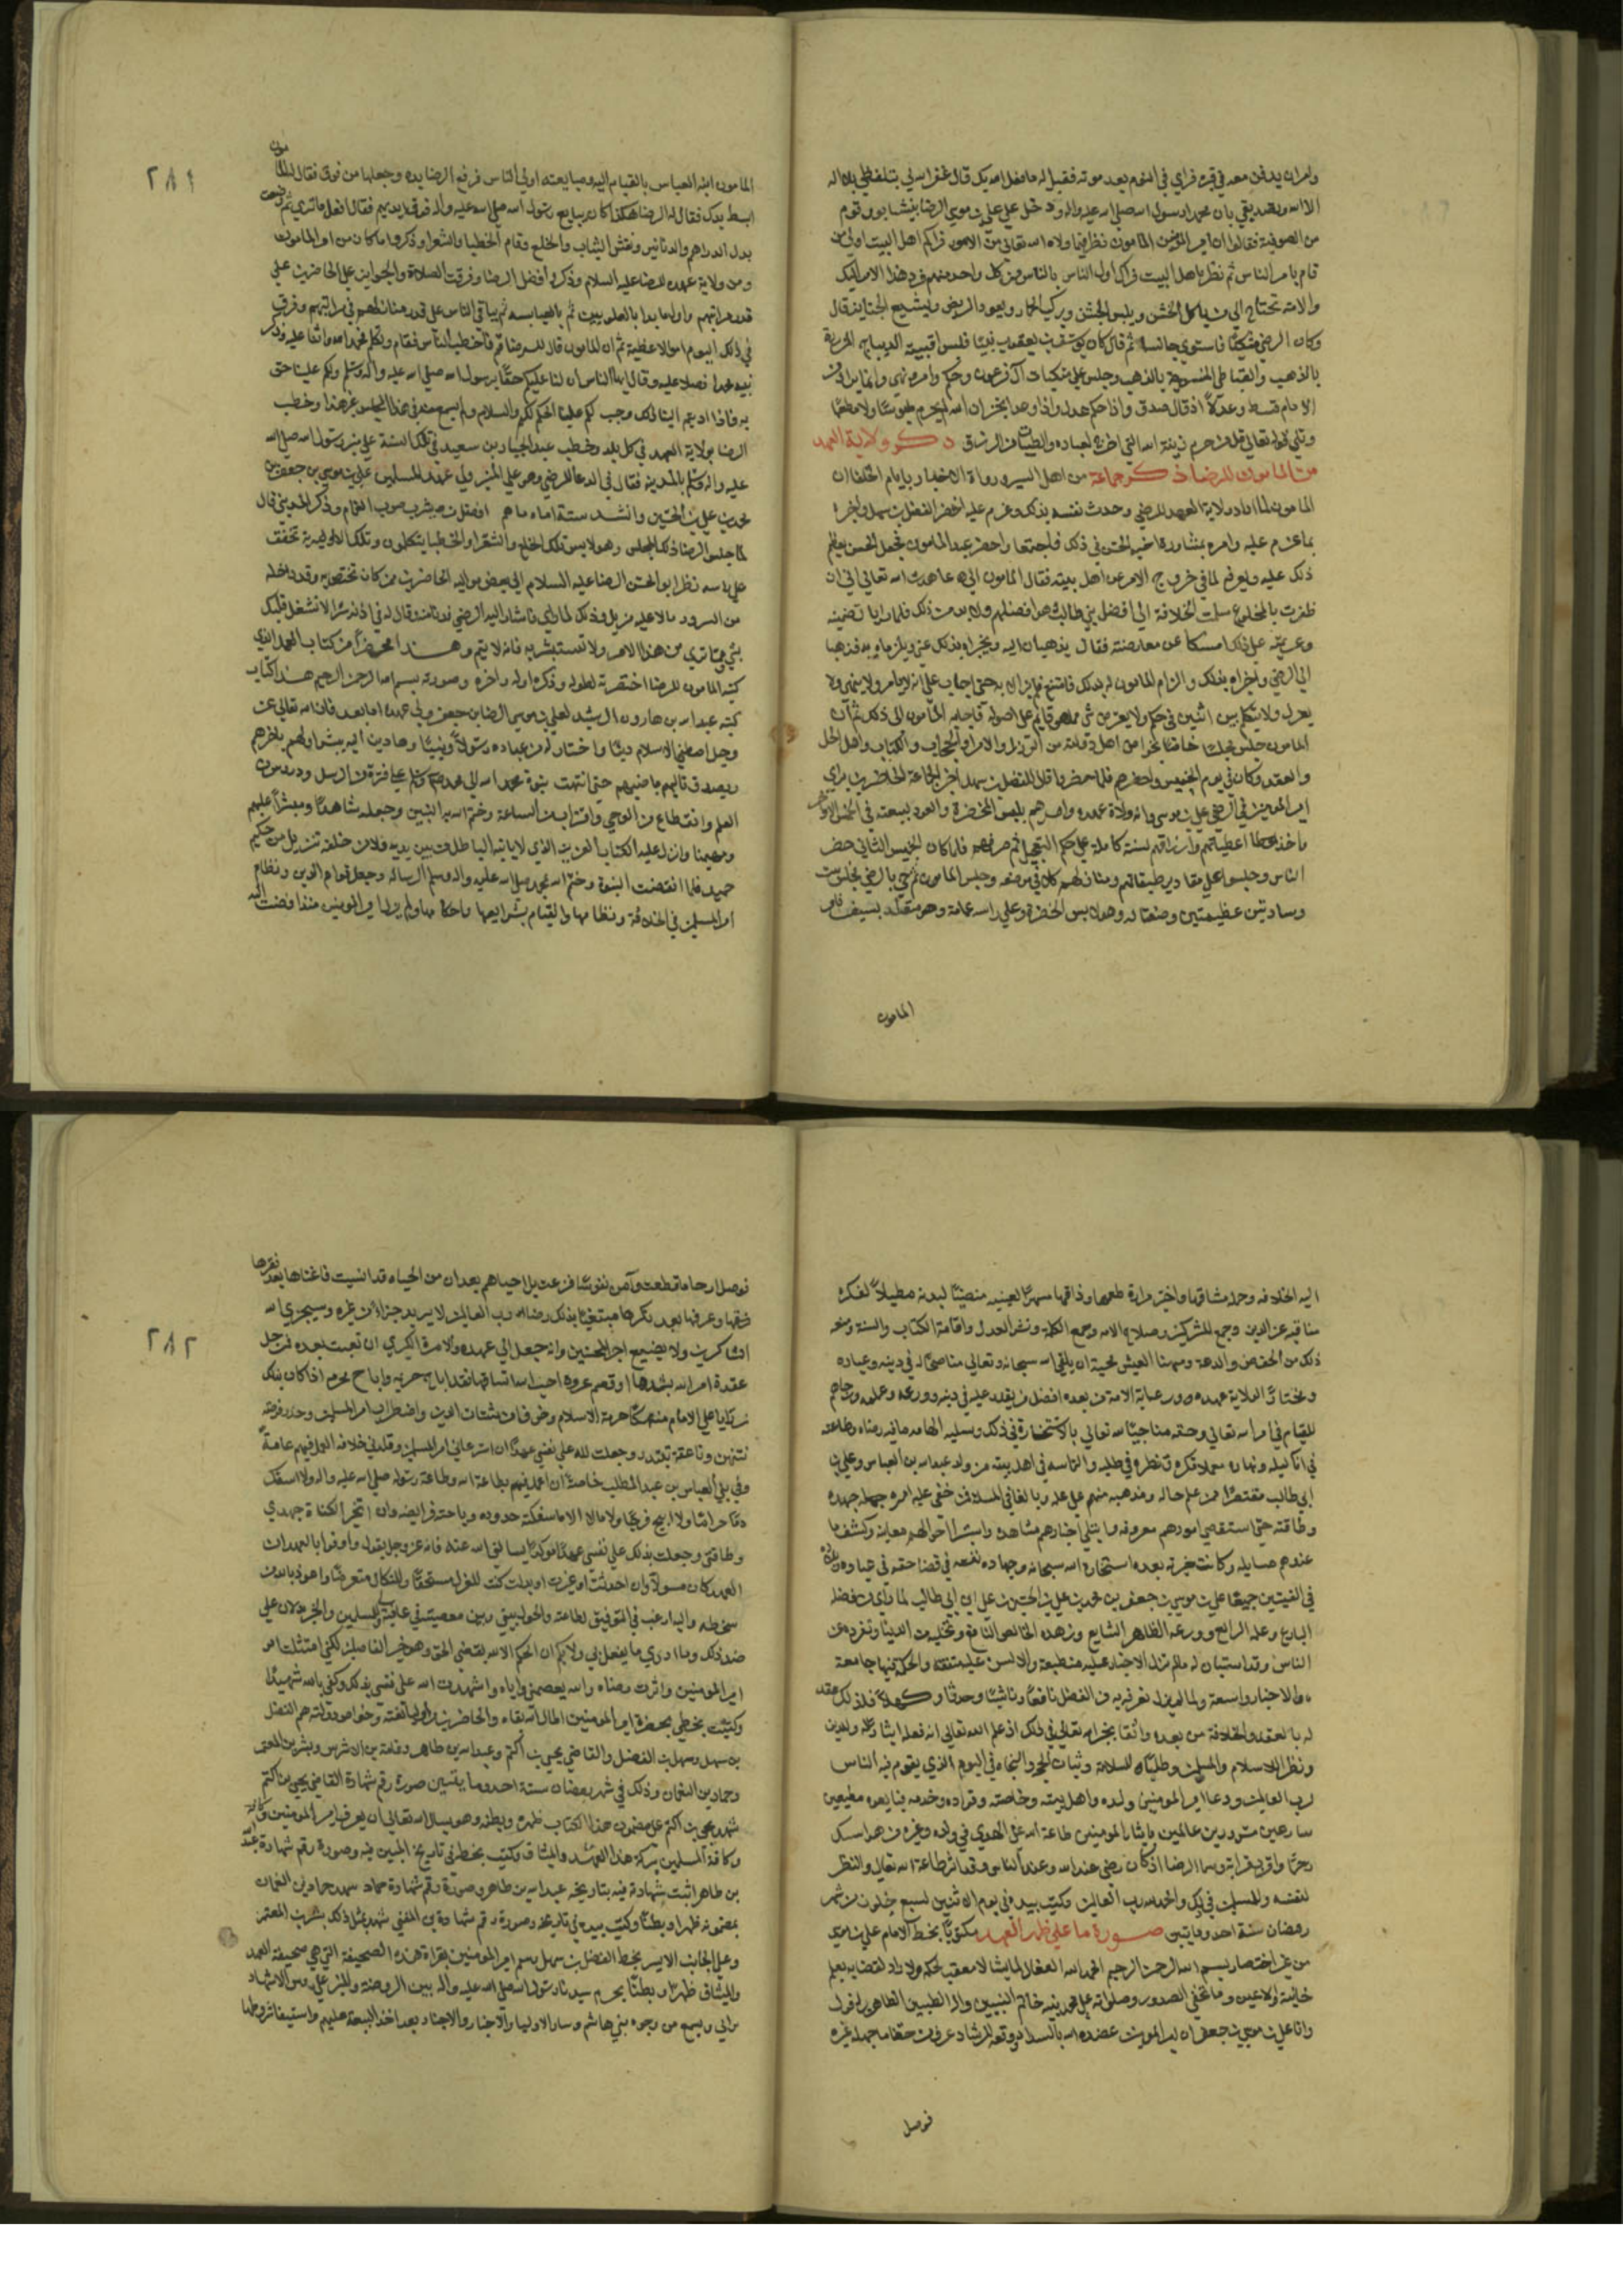 وامر ان يدفن معه في قبره فراي في النوم بعد موته فقيل له ما فعل الله بك قال غفر الله لي بتلفظي بلا اله
الا الله وتصديقي بان محمدا رسول الله صلى الله عليه واله ودخل على علي بن موسى الرضا بنيشابور قوم
من الصوفية فقالوا ان امير المومنين المامون نظر فيما ولاه الله تعالى من الامور فراكم اهل البيت اولى من
قام بامر الناس ثم نظر باهل البيت فراك اولى الناس بالناس من كل واحد منهم فرد هذا الامر اليك
والامة تحتاج الى من ياكل الخشن ويلبس الخشن ويركب الحمار ويعود المريض ويشيع الجنايز قال
وكان الرضي متكئا فاستوي جالسا ثم قال كان يوسف بن يعقوب نبيا فلبس اقبية الديباج المزررة
بالذهب والقباطي المنسوجة بالذهب وجلس على متكيات آل فرعون وحكم وامر ونهى وانما يراد من
الامام قسط وعدلا اذ قال صدق واذا حكم عدل واذا وعد انجز ان الله لم يحرم ملبوسا ولا مطعما
وتلى قوله تعالى قل من حرم زينة الله التي اخرج لعباده والطيبات من الرزق ذكر ولاية العهد
من المامون للرضا ذكر جماعة من اهل السير ورواة الاخبار بايام الخلفا ان
المامون لما اراد ولاية العهد للرضي وحدث نفسه بذلك وعزم عليه احضر الفضل بن سهل واخبره
بما عزم عليه وامره بمشاورة اخيه الحسن في ذلك فاجتمعا واحضر عند المامون فجعل الحسن يعظم
ذلك عليه ويعرفه لما في خروج الامر عن اهل بيته فقال المامون اني عاهدت الله تعالى اني ان
ظفرت بالمخلوع سلمت الخلافة الى افضل بني طالب وهو افضلهم ولا بد من ذلك فلما رايا تصميمه
وعزيمته على ذلك امسكا عن معارضته فقال يذهبان اليه ويخبراه بذلك عني ويلزماه به فذهبا
الى الرضي واخبراه بذلك والزام المامون له بذلك فامتنع فلم يزالا به حتى اجاب على انه لا يامر ولا ينهى ولا
يعزل ولا يتكلم بين اثنين في حكم ولا يغير من شي مما هو قايم على اصوله فاجابه المامون الى ذلك ثم ان
المامون جلس مجلسا خاصا لخواص اهل دولته من الوزرا والامرا والحجاب والكتاب واهل الحل
والعقد وكان في يوم الخميس واحضرهم فلما حضروا قال للفضل بن سهل اخبر الجماعة الحاضرين براي
امير المومنين في الرضي علي بن موسى وانه ولاه عهده وامرهم بلبس الخضرة والعود لبيعته في الخميس الاخر
وسادتين عظيمتين وضعتا له وهو لابس الخضرة وعلى راسه عمامة وهو متقلد بسيف فامر
المامون
٢٨١
المامون ابنه العباس بالقيام اليه ومبايعته اولى الناس فرفع الرضا يده وجعلها من فوق فقال له المامون
ابسط يدك فقال له الرضا هكذا كان يبايع رسول الله صلى الله عليه واله فوق ايديهم فقال افعل ما ترى ثم وضعت
بدل الدراهم والدنانير وبقش الثياب والخلع وقام الخطبا والشعرا وذكروا ما كان من امر المامون
ومن ولاية عهده للرضا عليه السلام وذكروا فضل الرضا وفرقت الصلاة والجوايز على الحاضرين على
قدر مراتبهم
في ذلك اليوم اموالا عظيمة ثم ان المامون قال للرضا قم فاخطب الناس فقام وتكلم فحمد الله واثنا عليه وذكر
نبيه محمدا فصلا عليه وقال ايها الناس ان لنا عليكم حقا برسول الله صلى الله عليه واله وسلم ولكم علينا حق
به فاذا اديتم الينا ذلك وجب لكم علينا الحكم لكم والسلام ولم يسمع منه في هذا المجلس غير هذا وخطب
الرضا بولاية العهد في كل بلد وخطب عبد الجبار بن سعيد في تلك السنة على منبر رسول الله صلى الله
عليه واله وسلم بالمدينة فقال في الدعا للرضي وهو على المنبر ولي عهد المسلمين علي بن موسى بن جعفر بن
محمد بن علي بن الحسين وانشد ستة اباء ما هم افضل من يشرب صوب الغمام وذكر المديني قال
لما جلس الرضا ذلك المجلس وهو لابس تلك الخلع والشعرا والخطبا يتكلمون وتلك الالوية تخفق
على راسه نظر ابو الحسن الرضا عليه السلام الى بعض مواليه الحاضرين ممن كان يختص به وقد داخله
من السرور ما لا عليه مزيد وذلك لما راي فاشار اليه الرضي فدنا منه وقال له في اذنه سرا لا تشغل قلبك
بشي مما ترى من هذا الامر ولا تستبشر به فانه لا يتم وهذا مختصرا من كتاب العهد الذي
كتبه المامون للرضا اختصرته لطوله وذكره اوله واخره وصورته بسم الله الرحمن الرحيم هذا كتاب
كتبه عبد الله بن هارون الرشيد لعلي بن موسى الرضا بن جعفر ولي عهده اما بعد فان الله تعالى عز
وجل اصطفى الاسلام دينا واختار له من عباده رسولا ونبيا وهادين اليه يبشر اولهم باخرهم
ويصدق تاليهم ماضيهم حتى انتهت نبوة محمد الله الى محمد صلى الله عليه وسلم على فترة من الرسل ودروس من
العلم وانقطاع من الوحي واقتراب من الساعة وختم الله به النبيين وجعله شاهدا ومبشرا عليهم
ومهيمنا وانزل عليه الكتاب العزيز الذي لا ياتيه الباطل من بين يديه ولا من خلفه تنزيل من حكيم
حميد فلما انقضت النبوة وختم الله بمحمد صلى الله عليه واله وسلم الرسالة وجعل قوام الدين ونظام
امر المسلمين في الخلافة ونظامها والقيام بشرايعها واحكامها ولم يزل امير المومنين منذ افضت
اليه الخلافة وحمل مشاقها واختبر مرارة طعمها وذاقها سهرا لعينيه منصبا لبدنه مطيلا لفكره
فيما فيه عز الدين وقمع المشركين وصلاح الامة وجمع الكلمة ونشر العدل واقامة الكتاب والسنة ومنعه
ذلك من الخفض والدعة ومهنا العيش محبة ان يلقى الله سبحانه وتعالى مناصحا له في دينه وعباده
ومختارا لولاية عهده ورعاية الامة من بعده افضل من يقدر عليه في دينه وورعه وعلمه وارجاهم
للقيام في امر الله تعالى وحقه مناجيا لله تعالى بالاستخارة في ذلك ومسئلته الهامه ما فيه رضاه وطاعته
في اناء ليله ونهاره معملا فكره ونظره في طلبه والتماسه في اهل بيته من ولد عبد الله بن العباس وعلي بن
ابي طالب مقتصرا ممن علم حاله ومذهبه منهم على علمه وبالغا في المسئلة فيمن خفي عليه امره جهده
وطاقته حتى استقصى امورهم معرفة وابتلى اخبارهم مشاهدة واستبرا احوالهم معاينة وكشف ما
عندهم مسايلة وكانت خيرته بعده استخارة الله سبحانه وجهاده نفسه في قضا حقه في عباده وبلاده
في الفئتين جميعا علي بن موسى بن جعفر بن محمد بن علي بن الحسين بن علي بن ابي طالب لما راى من فضله
البارع وعلمه الرايع وورعه الظاهر الشايع وزهده الخالص النافع وتخليه من الدنيا وتفرده عن
الناس وقد استبان له ما لم تزل الاخبار عليه منطبقة والالسن عليه متفقة والكلمة فيها جامعة
والاخبار واسعة ولما لم يزل نعرفه به من الفضل يافعا وناشيا وحدثا وكهلا فلذلك عقد
له بالعهد والخلافة من بعده واثقا بخيرة الله تعالى في ذلك اذ علم الله تعالى انه فعله ايثارا له والدين
ونظرا للاسلام والمسلمين وطلبا للسلامة وثبات الحجة والنجاة في اليوم الذي يقوم فيه الناس
لرب العالمين ودعا امير المومنين ولده واهل بيته وخاصته وقواده وخدمه فبايعوه مطيعين
سارعين مسرورين عالمين بايثار امير المومنين طاعة الله على الهوى في ولده وغيره
وسماه الرضا اذ كان رضى عند الله وعند الناس وقد اثر طاعة الله تعالى والنظر
لنفسه وللمسلمين في ذلك والحمد لله رب العالمين وكتب بيده في يوم الاثنين لسبع خلون من شهر
رمضان سنة احدى ومايتين صورة ما على ظهر العهد مكتوبا بخط الامام علي بن موسى
من غير اختصار بسم الله الرحمن الرحيم الحمد لله الفعال لما يشا لا معقب لحكمه ولا راد لقضايه يعلم
خاينة الاعين وما تخفي الصدور وصلواته على محمد نبيه خاتم النبيين واله الطيبين الطاهرين اقول
وانا علي بن موسى بن جعفر ان امير المومنين عضده الله بالسداد ووفقه للرشاد عرف من حقنا ما جهله غيره
فوصل
٢٨٢
فوصل ارحاما قطعت وآمن نفوسا فزعت بل احياهم بعد ان من الحياه قد انسيت فاغناها بعد فقرها
وعرفها بعد نكرها مبتغيا بذلك رضا الله رب العالمين لا يريد جزاء من غيره وسيجزي الله
الشاكرين ولا يضيع اجر المحسنين وانه جعل الي عهده والامرة الكبرى ان بقيت بعده فمن حل
عقدة امر الله بشدها او قصم عروة احب الله اتساقها فقد اباح حريمه واباح محرمه اذا كان بذلك
زاريا على الامام منهتكا حرمة الاسلام وخوفا من شتات الدين واضطراب امر المسلمين وحذر فرصة
تنتهز وناعقة تبتدر وجعلت لله على نفسي عهدا ان استرعاني امر المسلمين وقلدني خلافة العمل فيهم عامة
وفي بني العباس بن عبد المطلب خاصة ان اعمل فيهم بطاعة الله وطاعة رسوله صلى الله عليه واله ولا اسفك
دما حراما ولا ابيح فرجا ولا مالا الا ما سفكته حدوده وباحته فرايضه وان اتخير الكفاة جهدي
وطاقتي وجعلت بذلك على نفسي عهدا موكدا يسالني الله عنه فانه عز وجل يقول واوفوا بالعهد ان
العهد كان مسولا وان احدثت او غيرت او بدلت كنت للغول مستحقا وللنكال متعرضا واعوذ بالله من
سخطه واليه ارغب في التوفيق لطاعته والحول بيني وبين معصيته في عافية وللمسلمين
ضد ذلك وما ادري ما يفعل بي ولا بكم ان الحكم الا لله يقضي الحق وهو خير الفاصلين لكني امتثلت امر
امير المومنين واثرت رضاه والله يعصمني واياه واشهدت الله على نفسي بذلك وكفى بالله شهيدا
وكتبت بخطي بحضرة امير المومنين اطال الله بقاه والحاضرين من اوليا نعمته وخواص دولته هم الفضل
بن سهل وسهل بن الفضل والقاضي يحيى بن اكثم وعبد الله بن طاهر وثمامة بن الاشرس وبشر بن المعتمر
وحماد بن النعمان وذلك في شهر رمضان سنة احدى ومايتين صورة رقم شهادة القاضي يحيى بن اكثم
شهد يحيى بن اكثم على مضمون هذا الكتاب ظهره وبطنه وهو يسال الله تعالى ان يعرف امير المومنين وكافة
وكافة المسلمين بركة هذا العهد والميثاق وكتب بخطه في تاريخ المبين فيه وصورة رقم شهادة عبد الله
بن طاهر اثبت شهادته فيه بتاريخه عبد الله بن طاهر وصورة رقم شهادة حماد شهد حماد بن النعمان
بمضمونه ظهرا وبطنا وكتب بيده في تاريخه وصورة رقم شهادة بن المعتمر شهد بمثل ذلك بشر بن المعتمر
وعلى الجانب الايسر بخط الفضل بن سهل رسم امير المومنين بقراءة هذه الصحيفة التي هي صحيفة العهد
والميثاق ظهرا وبطنا بحرم سيدنا رسول الله صلى الله عليه واله بين الروضة والمنبر على روس الاشهاد
براي ومسمع من وجوه بني هاشم وساير الاوليا والاجناد بعد اخذ البيعة عليهم واستيفا شروطها